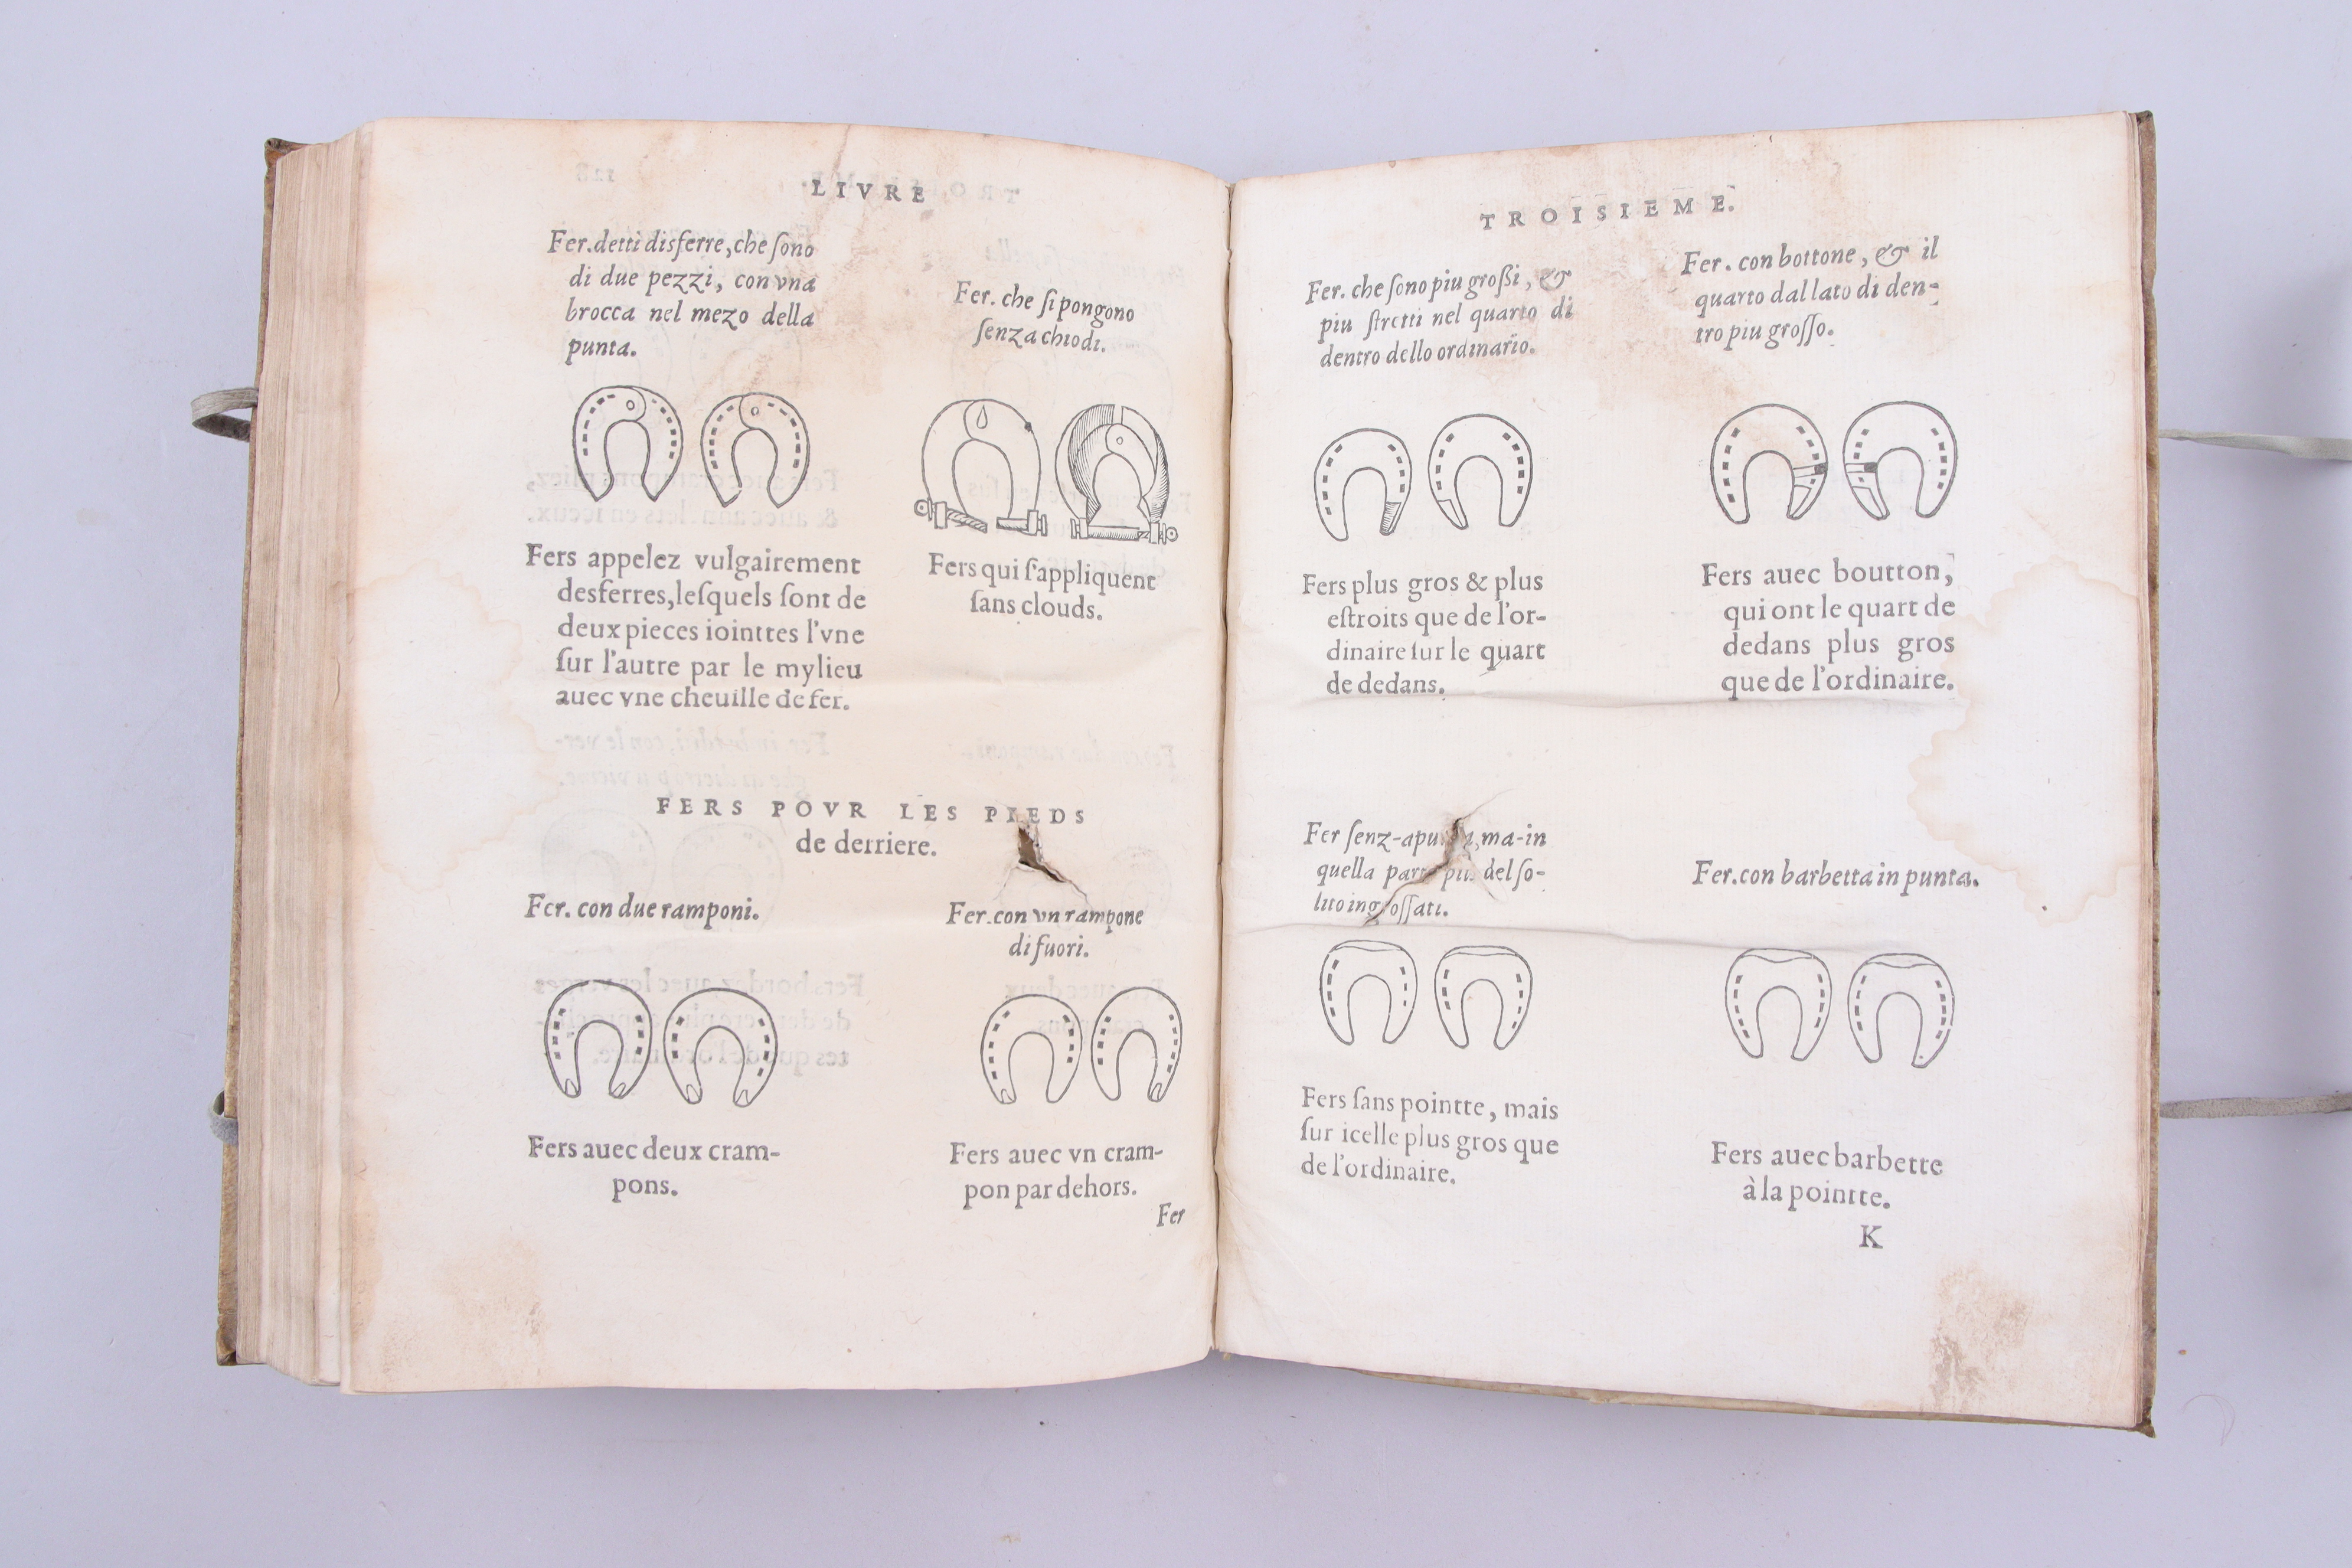 LIVRE
Fer. detti disferre, che ſono
di due pezzi, con vna
brocca nel mezo della
punta.
Fer. che ſi pongono
ſenza chiodi.
Fers appelez vulgairement
desferres, leſquels ſont de
deux pieces iointtes l'vne
ſur l'autre par le mylieu
auec vne cheuille de fer.
Fers qui ſ'appliquent
ſans clouds.
FERS POVR LES PIEDS
de derriere.
Fer. con due ramponi.
Fer. con vn rampone
di fuori.
Fers auec deux cram-
pons.
Fers auec vn cram-
pon par dehors.
Fer
TROISIEME.
Fer. che ſono piu großi, &
piu ſtretti nel quarto di
dentro dello ordinario.
Fer. con bottone, & il
quarto dal lato di den-
tro piu groſſo.
Fers plus gros & plus
eſtroits que de l'or-
dinaire ſur le quart
de dedans.
Fers auec boutton,
qui ont le quart de
dedans plus gros
que de l'ordinaire.
Fer ſenz-a ma-in
quella del ſo-
lito ingroſſati.
Fer. con barbetta in punta.
Fers ſans pointte, mais
ſur icelle plus gros que
de l'ordinaire.
Fers auec barbette
à la pointte.
K